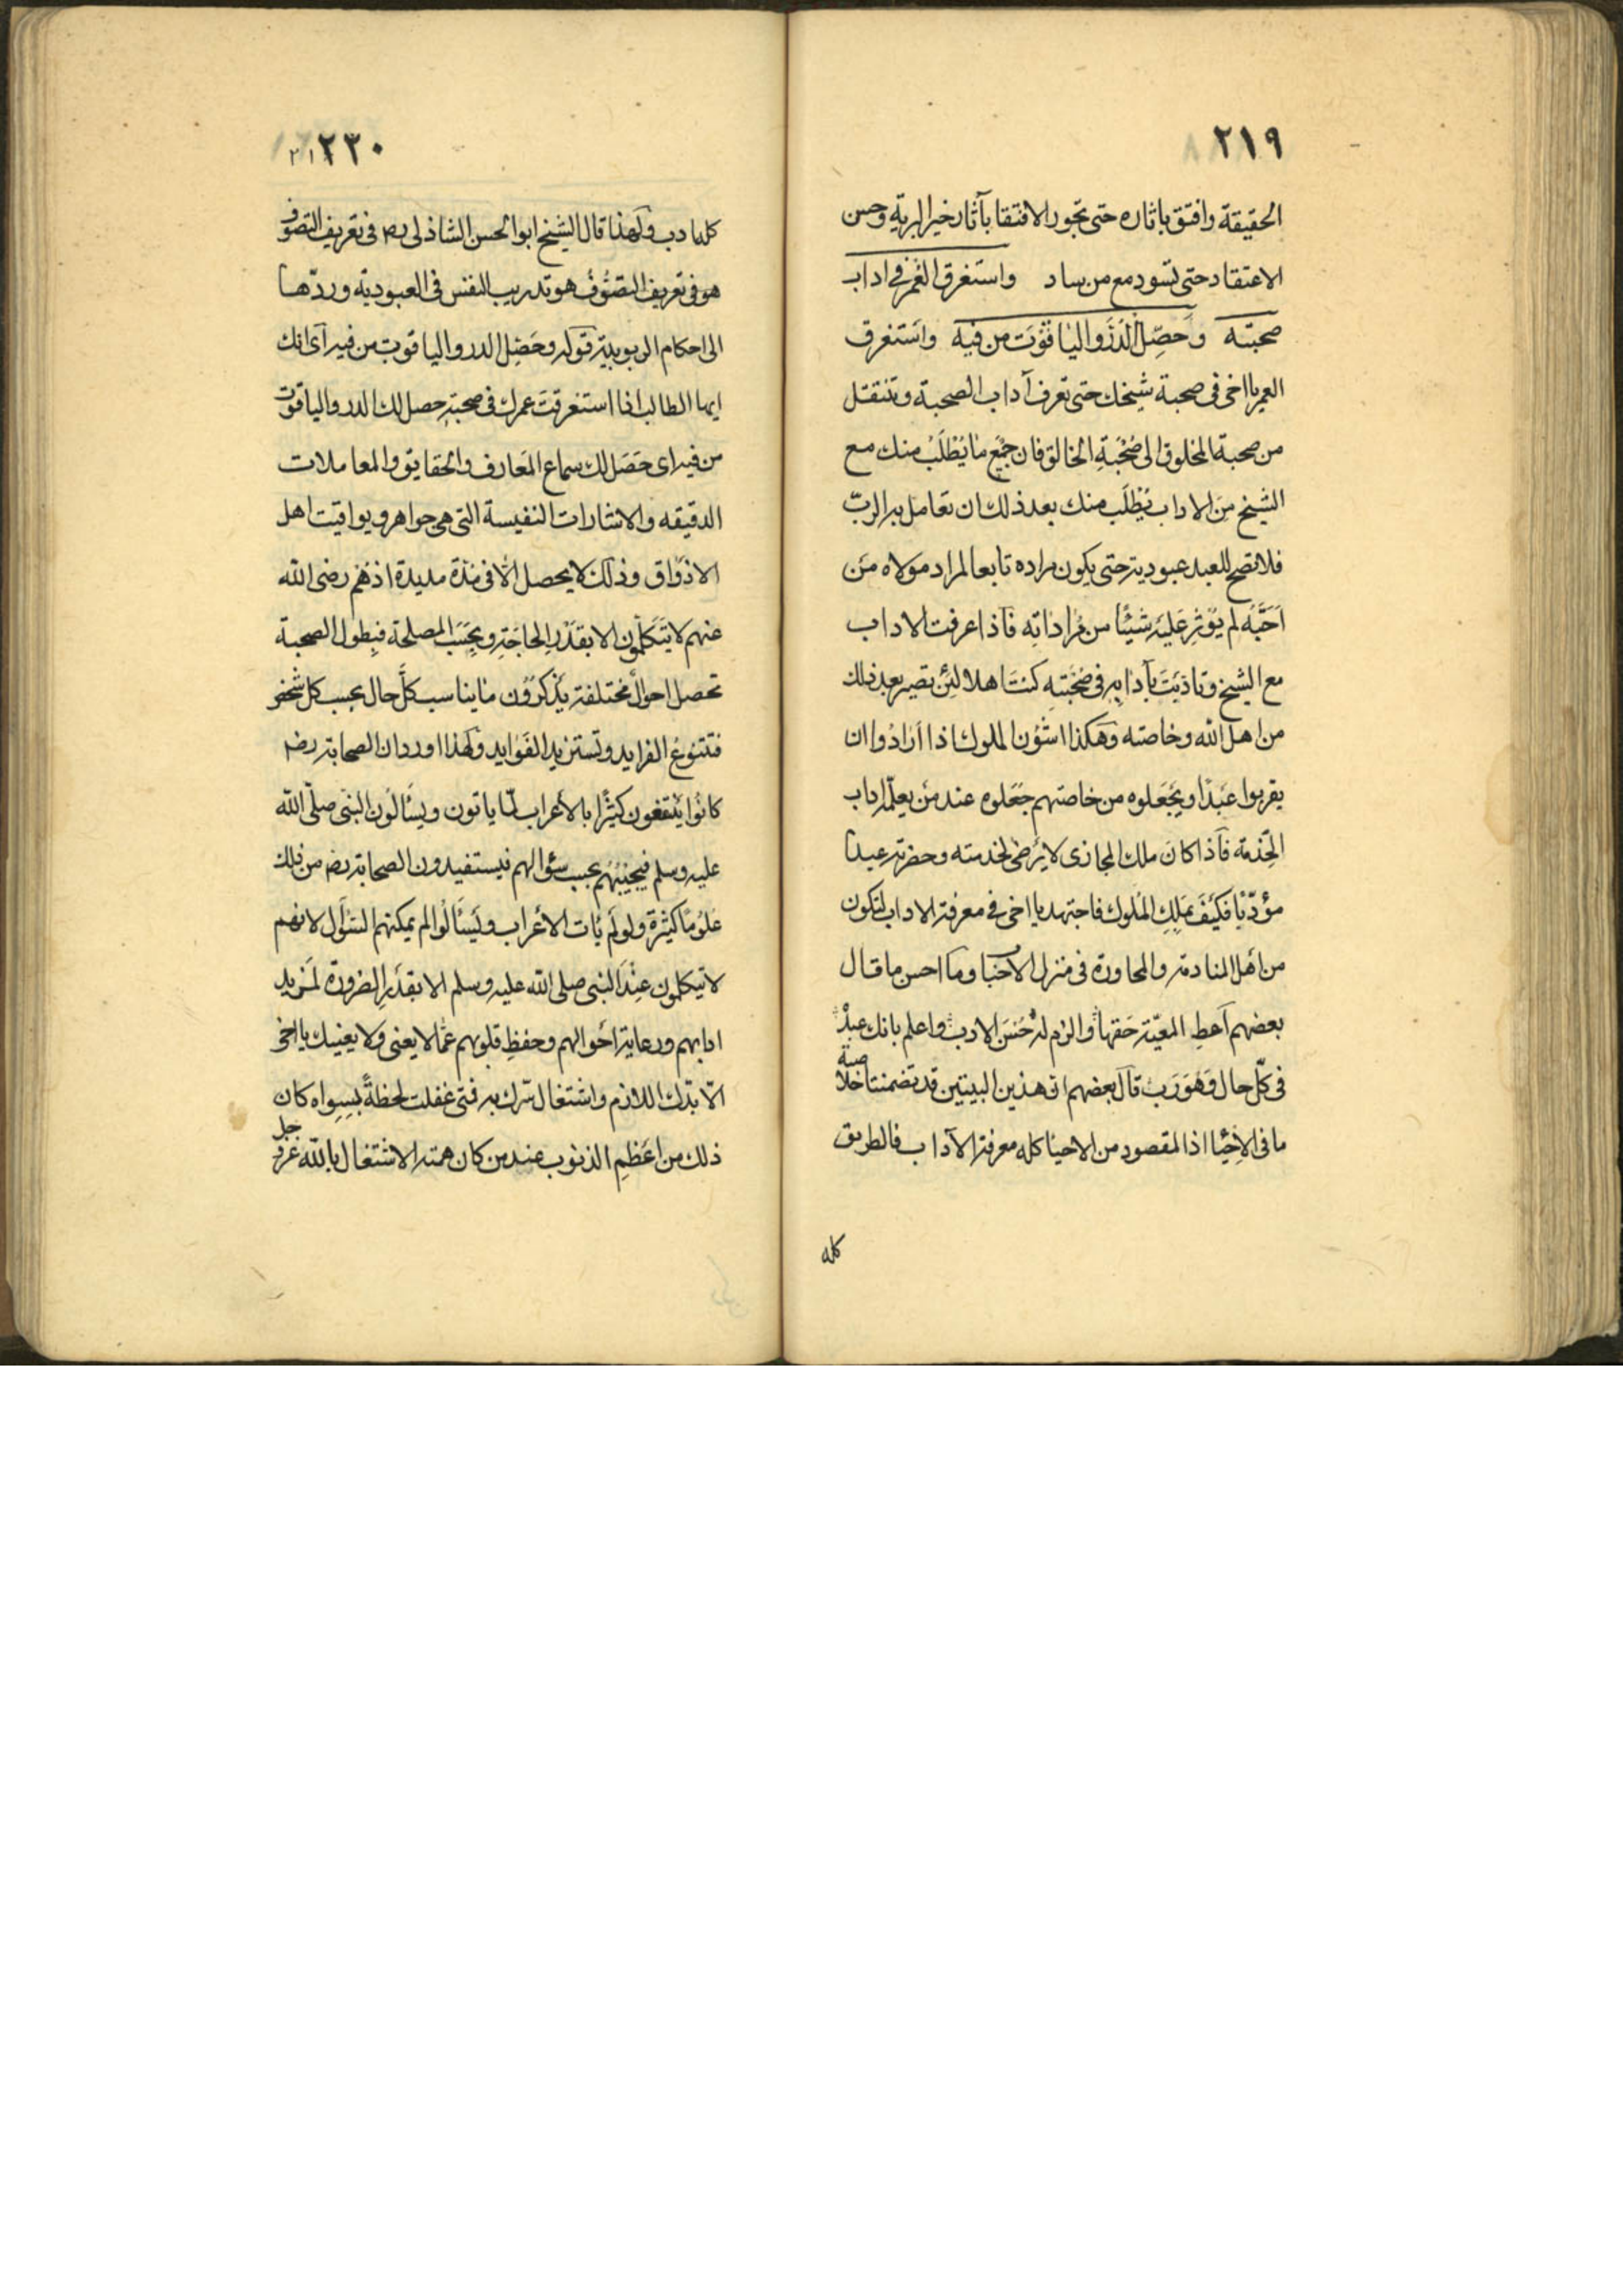 ٢١٩
الحقيقة وافتق باثاره حتى تحوز الافتقا بآثار خير البرية وحسن
الاعتقاد حتى تسود مع من ساد واستغرق العمر في اداب
صحبته وحصّل الدرر والياقوت من فيه واستغرق
العمر يا اخى فى صحبة شيخك حتى تعرف آداب الصحبة وتنتقل
من صحبة المخلوق الى صحبة الخالق فان جميع ما يُطلَبُ منك مع
الشيخ من الاداب يُطلَب منك بعد ذلك ان تعامل به الربّ
فلا تصح للعبد عبوديته حتى يكون مراده تابعا لمراد مولاه من
احبَّه لم يؤثر عليه شيئًا من مراداته فاذا عرفت الاداب
مع الشيخ وتاذيت بآدابه فى صحبته كنت اهلا لئن تصير بعد ذلك
من اهل الله وخاصته وهكذا شؤن الملوك اذا ارادوا ان
يقربوا عبدًا ويجعلوه من خاصتهم جعلوه عند من يعلّمه اداب
الخدمة فاذا كان ملك المجازى لا يرضى لخدمته وحضرته عبدا
مؤدّبًا فكيف بملك الملوك فاجتهد يا اخى في معرفة الاداب لتكون
من اهل المنادمة والمحاورة فى منزل الاحبا وما احسن ما قال
بعضهم اعطِ المعيّة حقها والزم له حُسنَ الادب واعلم بانك عبدٌ
فى كلّ حال وهو رب قال بعضهم ان هذين البيتين قد تضمنتا خلاصة
ما فى الاحيا اذ المقصود من الاحيا كله معرفة الآداب فالطريق
كله
٢٣٠
كله ادب ولهذا قال الشيخ ابو الحسن الشاذلى رضہ فى تعريف التصوف
هو فى تعريف التصوف هو تدريب النفس فى العبودية وردّها
الى احكام الربوبية قوله وحصّل الدر والياقوت من فيه اى انك
ايها الطالب اذا استغرقت عمرك فى صحبته حصل لك الدر والياقوت
من فيه اى حصل لك سماع المعارف والحقايق والمعاملات
الدقيقه والاشارات النفيسة التى هى جواهر ويواقيت اهل
الاذواق وذلك لا يحصل الّا فى مدّة مديدة اذ هم رضى الله
عنهم لا يتكلّمون الا بقدر الحاجة وبحسب المصلحة فبطول الصحبة
تحصل احوال مختلفة يذكرون ما يناسب كلّ حال بحسب كل شخص
فتتنوع الفرايد وتستزيد الفوايد ولهذا اورد ان الصحابة رضہ
كانوا ينتفعون كثيرًا بالأعراب لمّا ياتون ويسألون النبى صلّى الله
عليه وسلم فيجيبهم بحسب سؤالهم فيستفيدون الصحابة رضہ من ذلك
علومًا كثيرة ولو لم يأت الأعراب ويسألوا لم يمكنهم السؤال لانهم
لا يتكلمون عند النبى صلى الله عليه وسلم الا بقدر الضرورة لمزيد
ادابهم ورعاية احوالهم وحفظ قلوبهم عما لا يعنى ولا يعنيك يا اخى
الّا بدّك اللازم واشتغال سّرك به فتى غفلت لحظةً بسواه كان
ذلك من اعظم الذنوب عند من كان همته الاشتغال بالله عز وجل